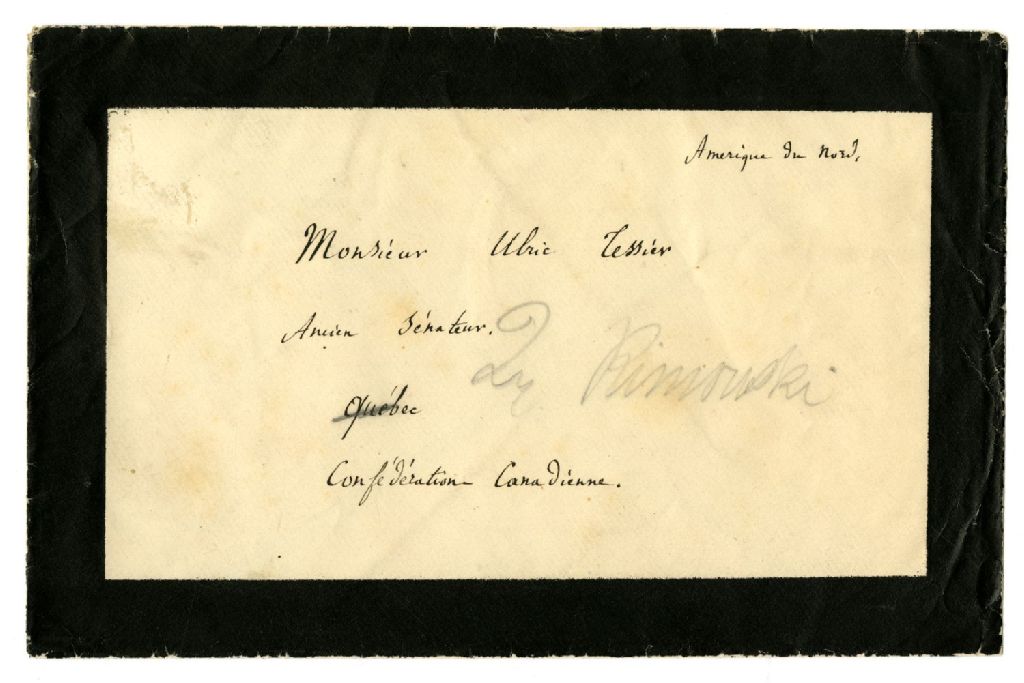 Amerique du Nord.
Monsieur Ulric Tessier
Ancien Sénateur.
Rimouski
Québec
Confédération Canadienne.